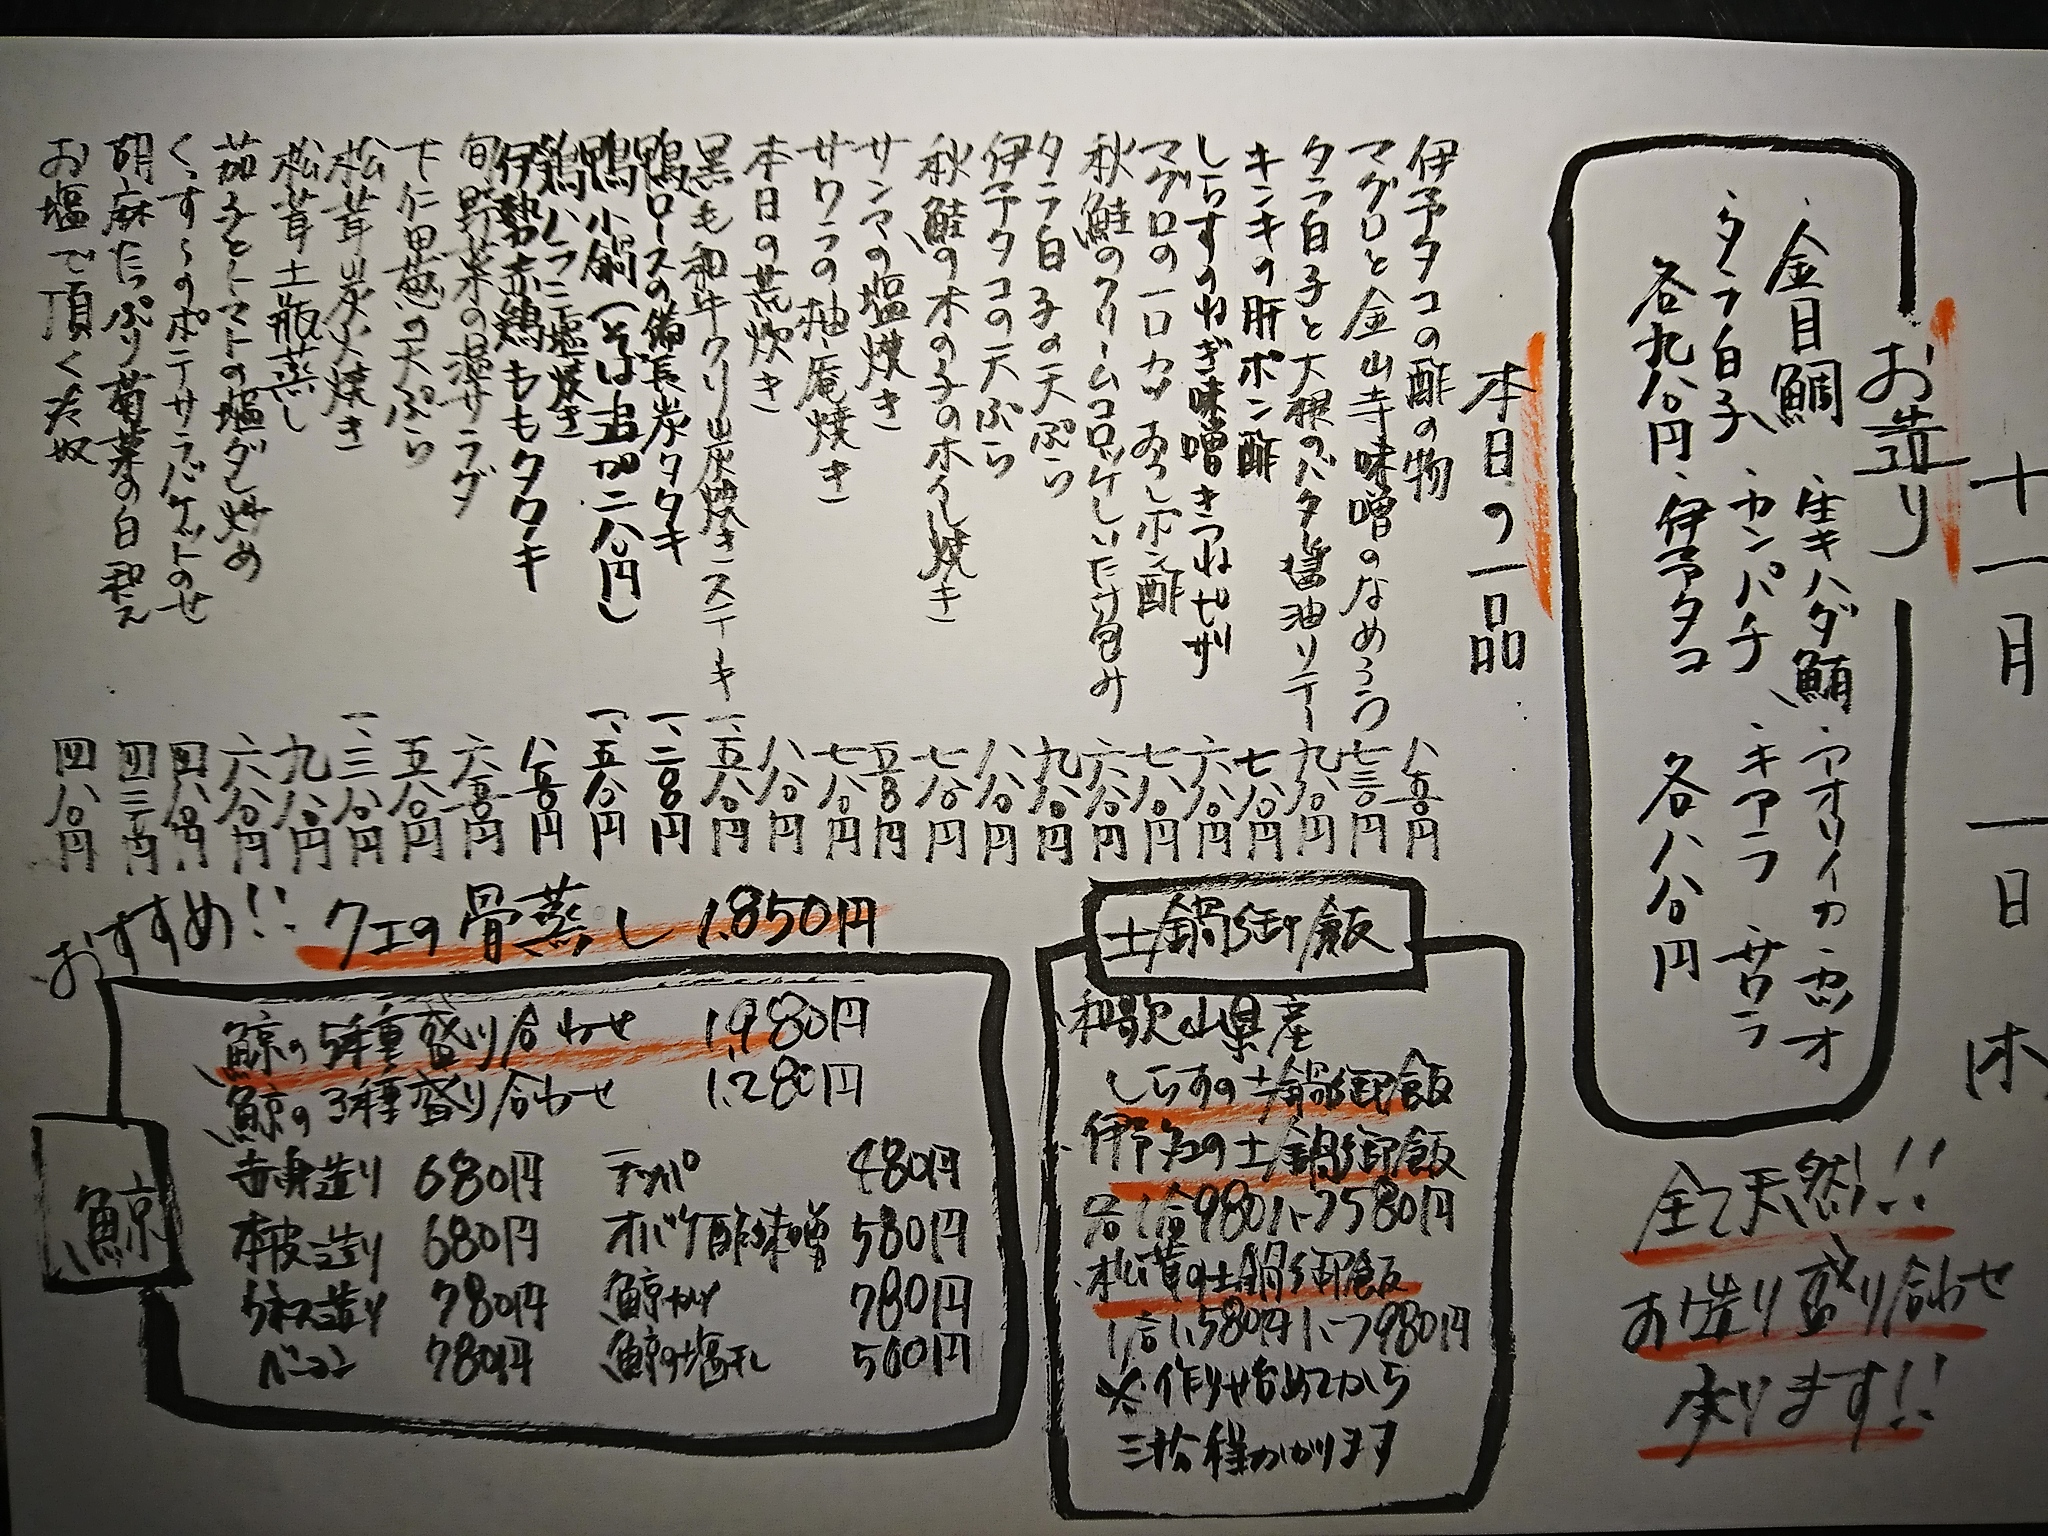 十一月一日 木
お造り
・金目鯛 ・生キハダ鮪 ・アオリイカ ・カツオ
・タラ白子 ・カンパチ ・キアラ ・サワラ
各九八〇円 ・伊予タコ 各八八〇円
全て天然!!
お造り盛り合わせ
承ります!!
本日の一品
伊予タコの酢の物 八五〇円
マグロと金山寺味噌のなめろう 七三〇円
タラ白子と大根のバター醤油ソテー 九八〇円
キンキの肝ポン酢 七八〇円
しらすのねぎ味噌きつねピザ 六八〇円
マグロの一口カツおろしポン酢 七八〇円
秋鮭のクリームコロッケしいたけ包み 六八〇円
タラ白子の天ぷら 九八〇円
伊予タコの天ぷら 八八〇円
秋鮭の木の子のホイル焼き 七八〇円
サンマの塩焼き 五五〇円
サワラの柚庵焼き 七八〇円
本日の荒炊き 八八〇円
黒毛和牛クリ炭焼きステーキ 一、五八〇円
鴨ロースの備長炭タタキ 一、二八〇円
鴨小鍋(そば追加二八〇円) 一、五八〇円
鶏ハラミ塩焼き
伊勢赤鶏ももタタキ 八五〇円
旬野菜の温サラダ 六五〇円
下仁田葱の天ぷら 五八〇円
松茸炭火焼き 一、三八〇円
松茸土瓶蒸し 九八〇円
茄子とトマトの塩ダレ炒め 六八〇円
くんすぅのポテサラバケットのせ 四八〇円
胡麻たっぷり菊菜の白和え 四三〇円
お塩で頂く冷奴 四八〇円
おすすめ!! クエの骨蒸し 1.850円
土鍋御飯
・和歌山県産
しらすの土鍋御飯
・伊予タコの土鍋御飯
各1合980円、二つ580円
・松茸の土鍋御飯
1合1.580円、二つ980円
※作り始めてから
三拾分程かかります
鯨
鯨の5種盛り合わせ 1,980円
鯨の3種盛り合わせ 1.280円
赤身造り 680円 テッパ 480円
本皮造り 680円 オバケ酢味噌 580円
ウネス造り 780円 鯨カツ 780円
ベーコン 780円 鯨の塩干し 500円